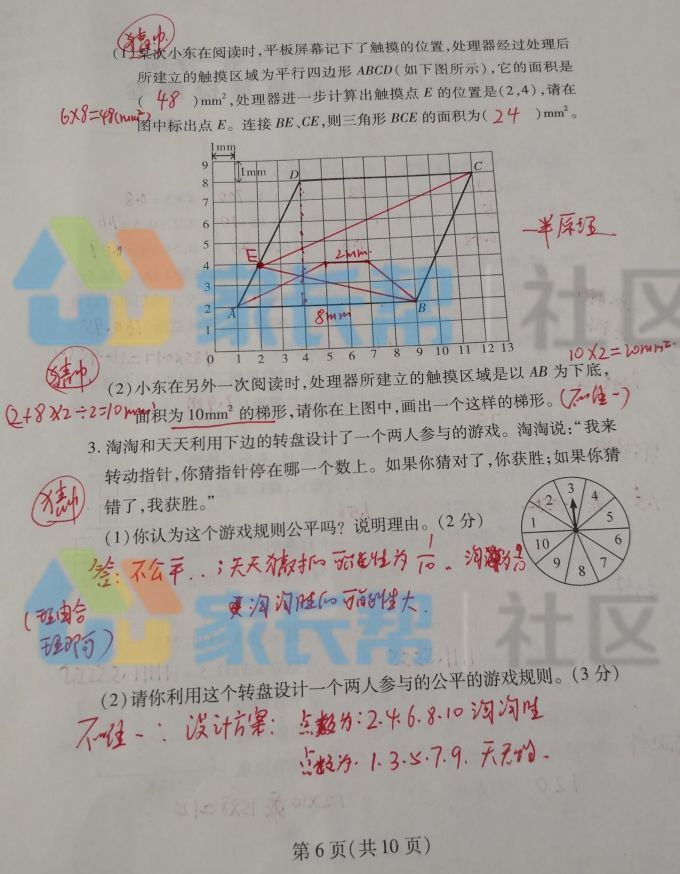 猜中
(1)某次小东在阅读时,平板屏幕记下了触摸的位置,处理器经过处理后
所建立的触摸区域为平行四边形 ABCD(如下图所示),它的面积是
( 48 )mm²,处理器进一步计算出触摸点 E 的位置是(2,4),请在
6×8=48(mm²)
图中标出点 E。连接 BE、CE,则三角形 BCE 的面积为( 24 )mm²。
1mm
1mm
9
8
7
6
5
4
3
2
1
0 1 2 3 4 5 6 7 8 9 10 11 12 13
D
C
E
A
B
2mm
8mm
一半原理
10×2=20mm²
猜中
(2)小东在另外一次阅读时,处理器所建立的触摸区域是以 AB 为下底,
(2+8×2÷2=10mm)
面积为 10mm² 的梯形,请你在上图中,画出一个这样的梯形。(不唯一)
3. 淘淘和天天利用下边的转盘设计了一个两人参与的游戏。淘淘说:“我来
转动指针,你猜指针停在哪一个数上。如果你猜对了,你获胜;如果你猜
猜中
错了,我获胜。”
1 2 3 4 5 6 7 8 9 10
(1)你认为这个游戏规则公平吗? 说明理由。(2 分)
答:不公平..;天天猜对的可能性为 1/10。淘淘为 9/10
淘淘胜的可能性大.
(理由合
理即可)
社区
社区
(2)请你利用这个转盘设计一个两人参与的公平的游戏规则。(3 分)
不唯一:设计方案: 点数为:2.4.6.8.10 淘淘胜
点数为.1.3.5.7.9. 天天胜.
第 6 页(共 10 页)